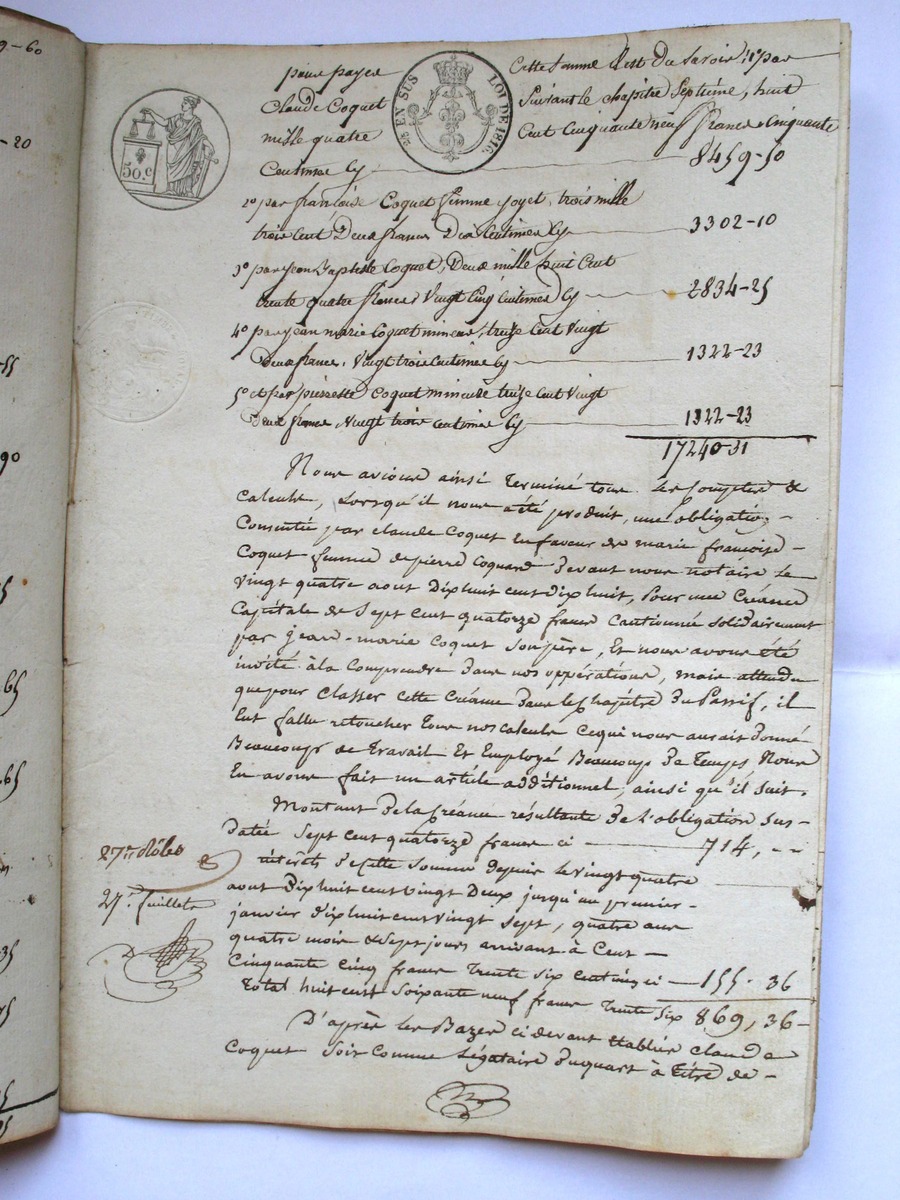 9-60
-20
-55
90
5
-65
-65
35
75
50.c
2/8 EN SUS LOI DE 1816.
pour payer cette somme il est du savoir; 1º par
Claude Coquet suivant le chapitre septième, huit
mille quatre cent cinquante neuf francs, cinquante
centimes cy 8459-50
2º par françoise Coquet femme joyet, trois mille
trois cent deux francs dix centimes cy 3302-10
3º par jean Baptiste Coquet, Deux mille huit cent
trente quatre francs vingt cinq centimes cy 2834-25
4º par jean marie Coquet mineur, treize cent vingt
deux francs, vingt trois centimes cy 1322-23
5º et par pierrette Coquet mineure treize cent vingt
deux francs vingt trois centimes cy 1322-23
17240-31
Nous avions ainsi terminé tous les comptes &
calculs, Lorsqu'il nous a été produit, une obligation
Consentie par claude Coquet En faveur de marie francoise
Coquet femme de pierre Coquard Devant nous notaire Le
vingt quatre aout Dix huit cent dix huit, Pour une Créance
Capitale de Sept cent quatorze francs cautionnée solidairement
par jean-marie Coquet Son père, Et nous avons été
invité à la Comprendre Dans nos oppérations, mais attendu
que pour classer cette Créance Dans le chapitre Du Passif, il
Eut fallu retoucher tous nos calculs ce qui nous aurait donné
Beaucoup de travail Et Employé Beaucoup De Temps Nous
En avons fait un article additionnel, ainsi qu'il suit.
Montant De la Créance résultante De l'obligation sus-
Datée Sept cent quatorze francs ci 714, --
27me Rôle
intérêts De cette Somme depuis le vingt quatre
aout Dix huit cent vingt Deux jusqu'au premier
27. feuillet
janvier Dix huit cent vingt sept, quatre ans
quatre mois & sept jours arrivant à Cent
Cinquante cinq francs trente six centimes ci 155. 36
Total huit cent soixante neuf francs trente six 869, 36-
D'après les Bazes ci devant Etablies claude
Coquet Soit comme Légataire Du quart à titre de-